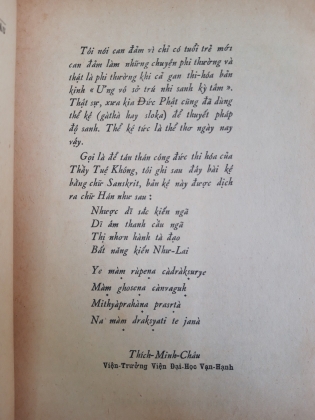 Tôi nói can đảm vì chỉ có tuổi trẻ mới
can đảm làm những chuyện phi thường và
thật là phi thường khi cả gan thi-hóa bản
kinh « Ưng vô sở trú nhi sanh kỳ tâm ».
Thật sự, xưa kia Đức Phật cũng đã dùng
thể kệ (gàthà hay sloka) để thuyết pháp
độ sanh. Thể kệ tức là thể thơ ngày nay
vậy.
Gọi là để tán thán công đức thi hóa của
Thầy Tuệ Không, tôi ghi sau đây bài kệ
bằng chữ Sanskrit, bản kệ này được dịch
ra chữ Hán như sau :
Nhược dĩ sắc kiến ngã
Dĩ âm thanh cầu ngã
Thị nhơn hành tà đạo
Bất năng kiến Như-Lai
Ye màm rùpena càdràksurye
Màm ghosena cànvaguh
Mithyàprahàna prasrtà
Na màm draksyati te janà
Thích-Minh-Châu
Viện-Trưởng Viện Đại-Học Vạn-Hạnh